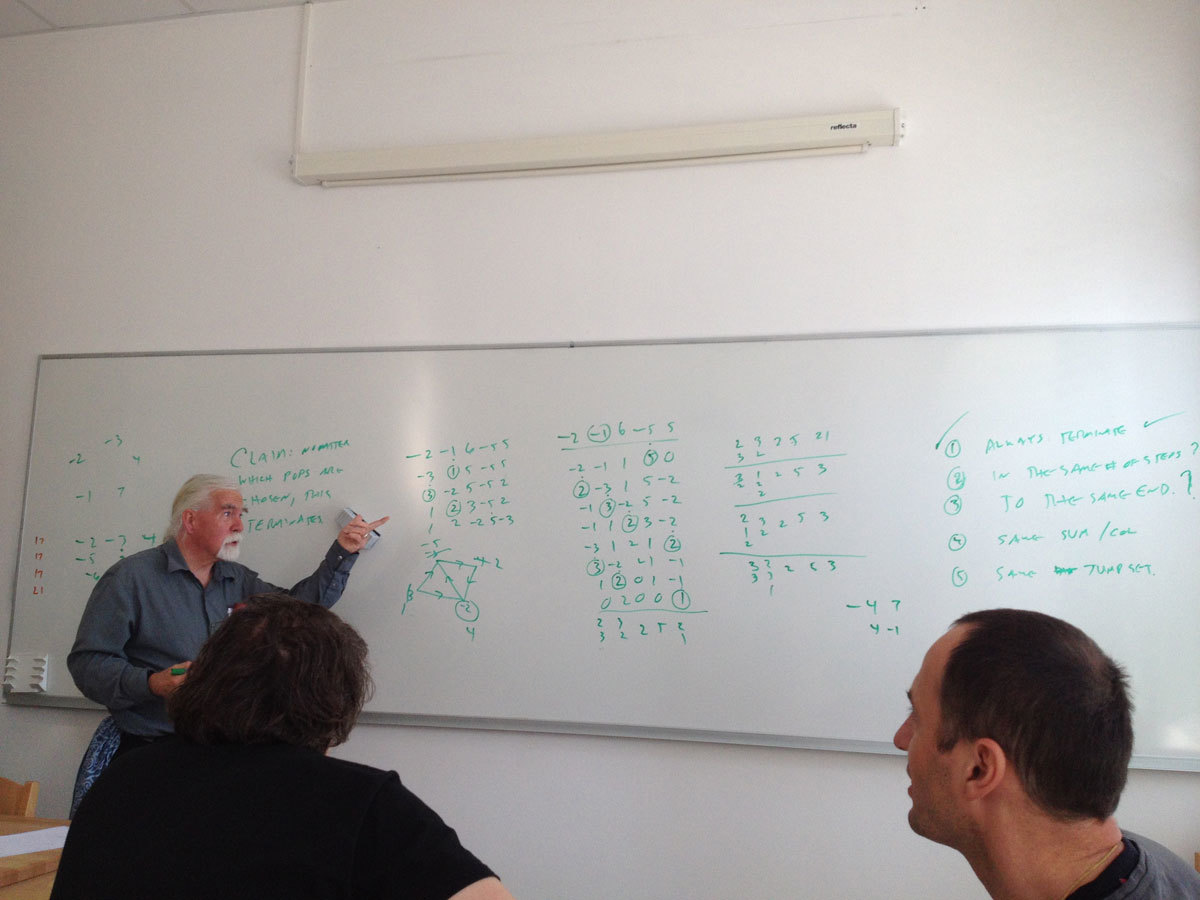 reflecta
-3
-2 4
-1 7
17
17
17
21
-2 -3 4
-5
CLAIM: NO MATTER
WHICH POPS ARE
CHOSEN, THIS
TERMINATES
-2 -1 6 -5 5
-3 1 5 -5 5
3 -2 5 -5 2
1 2 3 -5 2
1 2 -2 5 -3
-5
-2
4
-2 -1 6 -5 5
-2 -1 1 5 0
2 -3 1 5 -2
-1 3 -2 5 -2
-1 1 2 3 -2
-3 1 2 1 2
3 -2 2 1 -1
1 2 0 1 -1
0 2 0 0 1
2 3
3 2 2 5 2
1
2 3 2 5 21
3 2
3 1 2 5 3
2 2
2
2 3 2 5 3
1 2
2
3 2 2 5 3
3 2
1
① ALWAYS TERMINATE ✓
② IN THE SAME # OF STEPS?
③ TO THE SAME END.?
④ SAME SUM/COL
⑤ SAME JUMP SET.
-4 7
4 -1